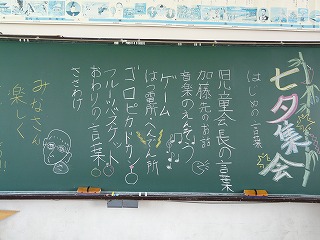 七夕集会
はじめの言葉
児童会長の言葉
加藤先のお話
音楽のえんそう
ゲーム
はつ電所へんでん所
ゴロピカドン
フルーツバスケット
おわりの言葉
ささわけ
みなさん
楽しく